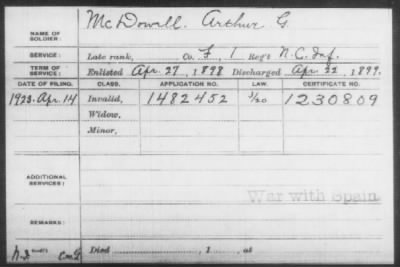 NAME OF SOLDIER: McDowell. Arthur G.
SERVICE: Late rank, Co. F, 1 Reg't N.C. Inf.
TERM OF SERVICE: Enlisted Apr. 27, 1898 Discharged Apr. 22, 1899.
DATE OF FILING. CLASS. APPLICATION NO. LAW. CERTIFICATE NO.
1923. Apr. 14 Invalid, 1482452 1230809
Widow,
Minor,
ADDITIONAL SERVICES:
War with Spain.
REMARKS:
Died , 1 , at